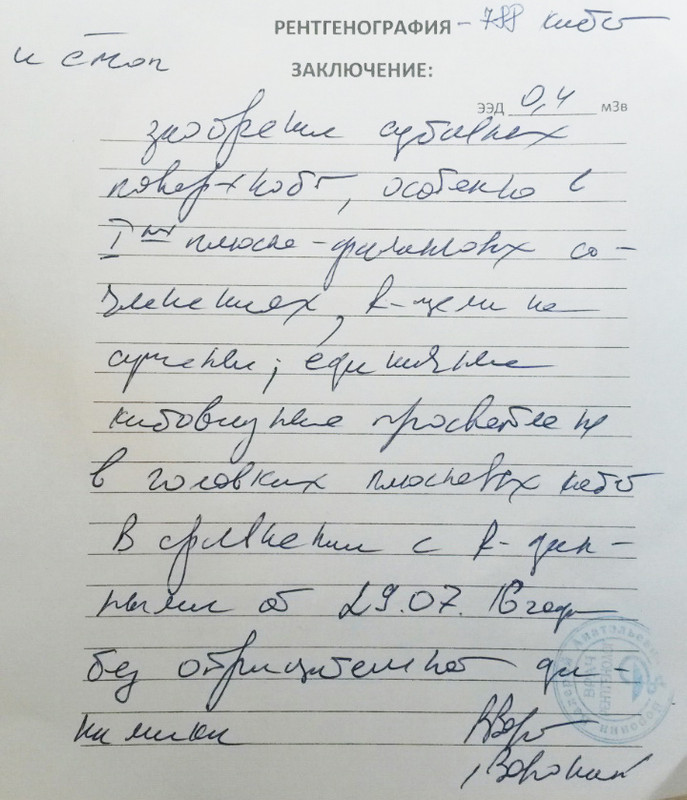 РЕНТГЕНОГРАФИЯ - 788 кистей
и стоп
ЗАКЛЮЧЕНИЕ:
ЭЭД 0,4 мЗв
заострены суставных
поверхностей, особенно в
I-ых плюсне-фаланговых со-
членениях, R-щели не
сужены; единичные
кистовидные просветления
в головках плюсневых костей
В сравнении с R-дан-
ными от 29.07.16 года
без отрицательной ди-
намики
Воронин
ВРАЧ